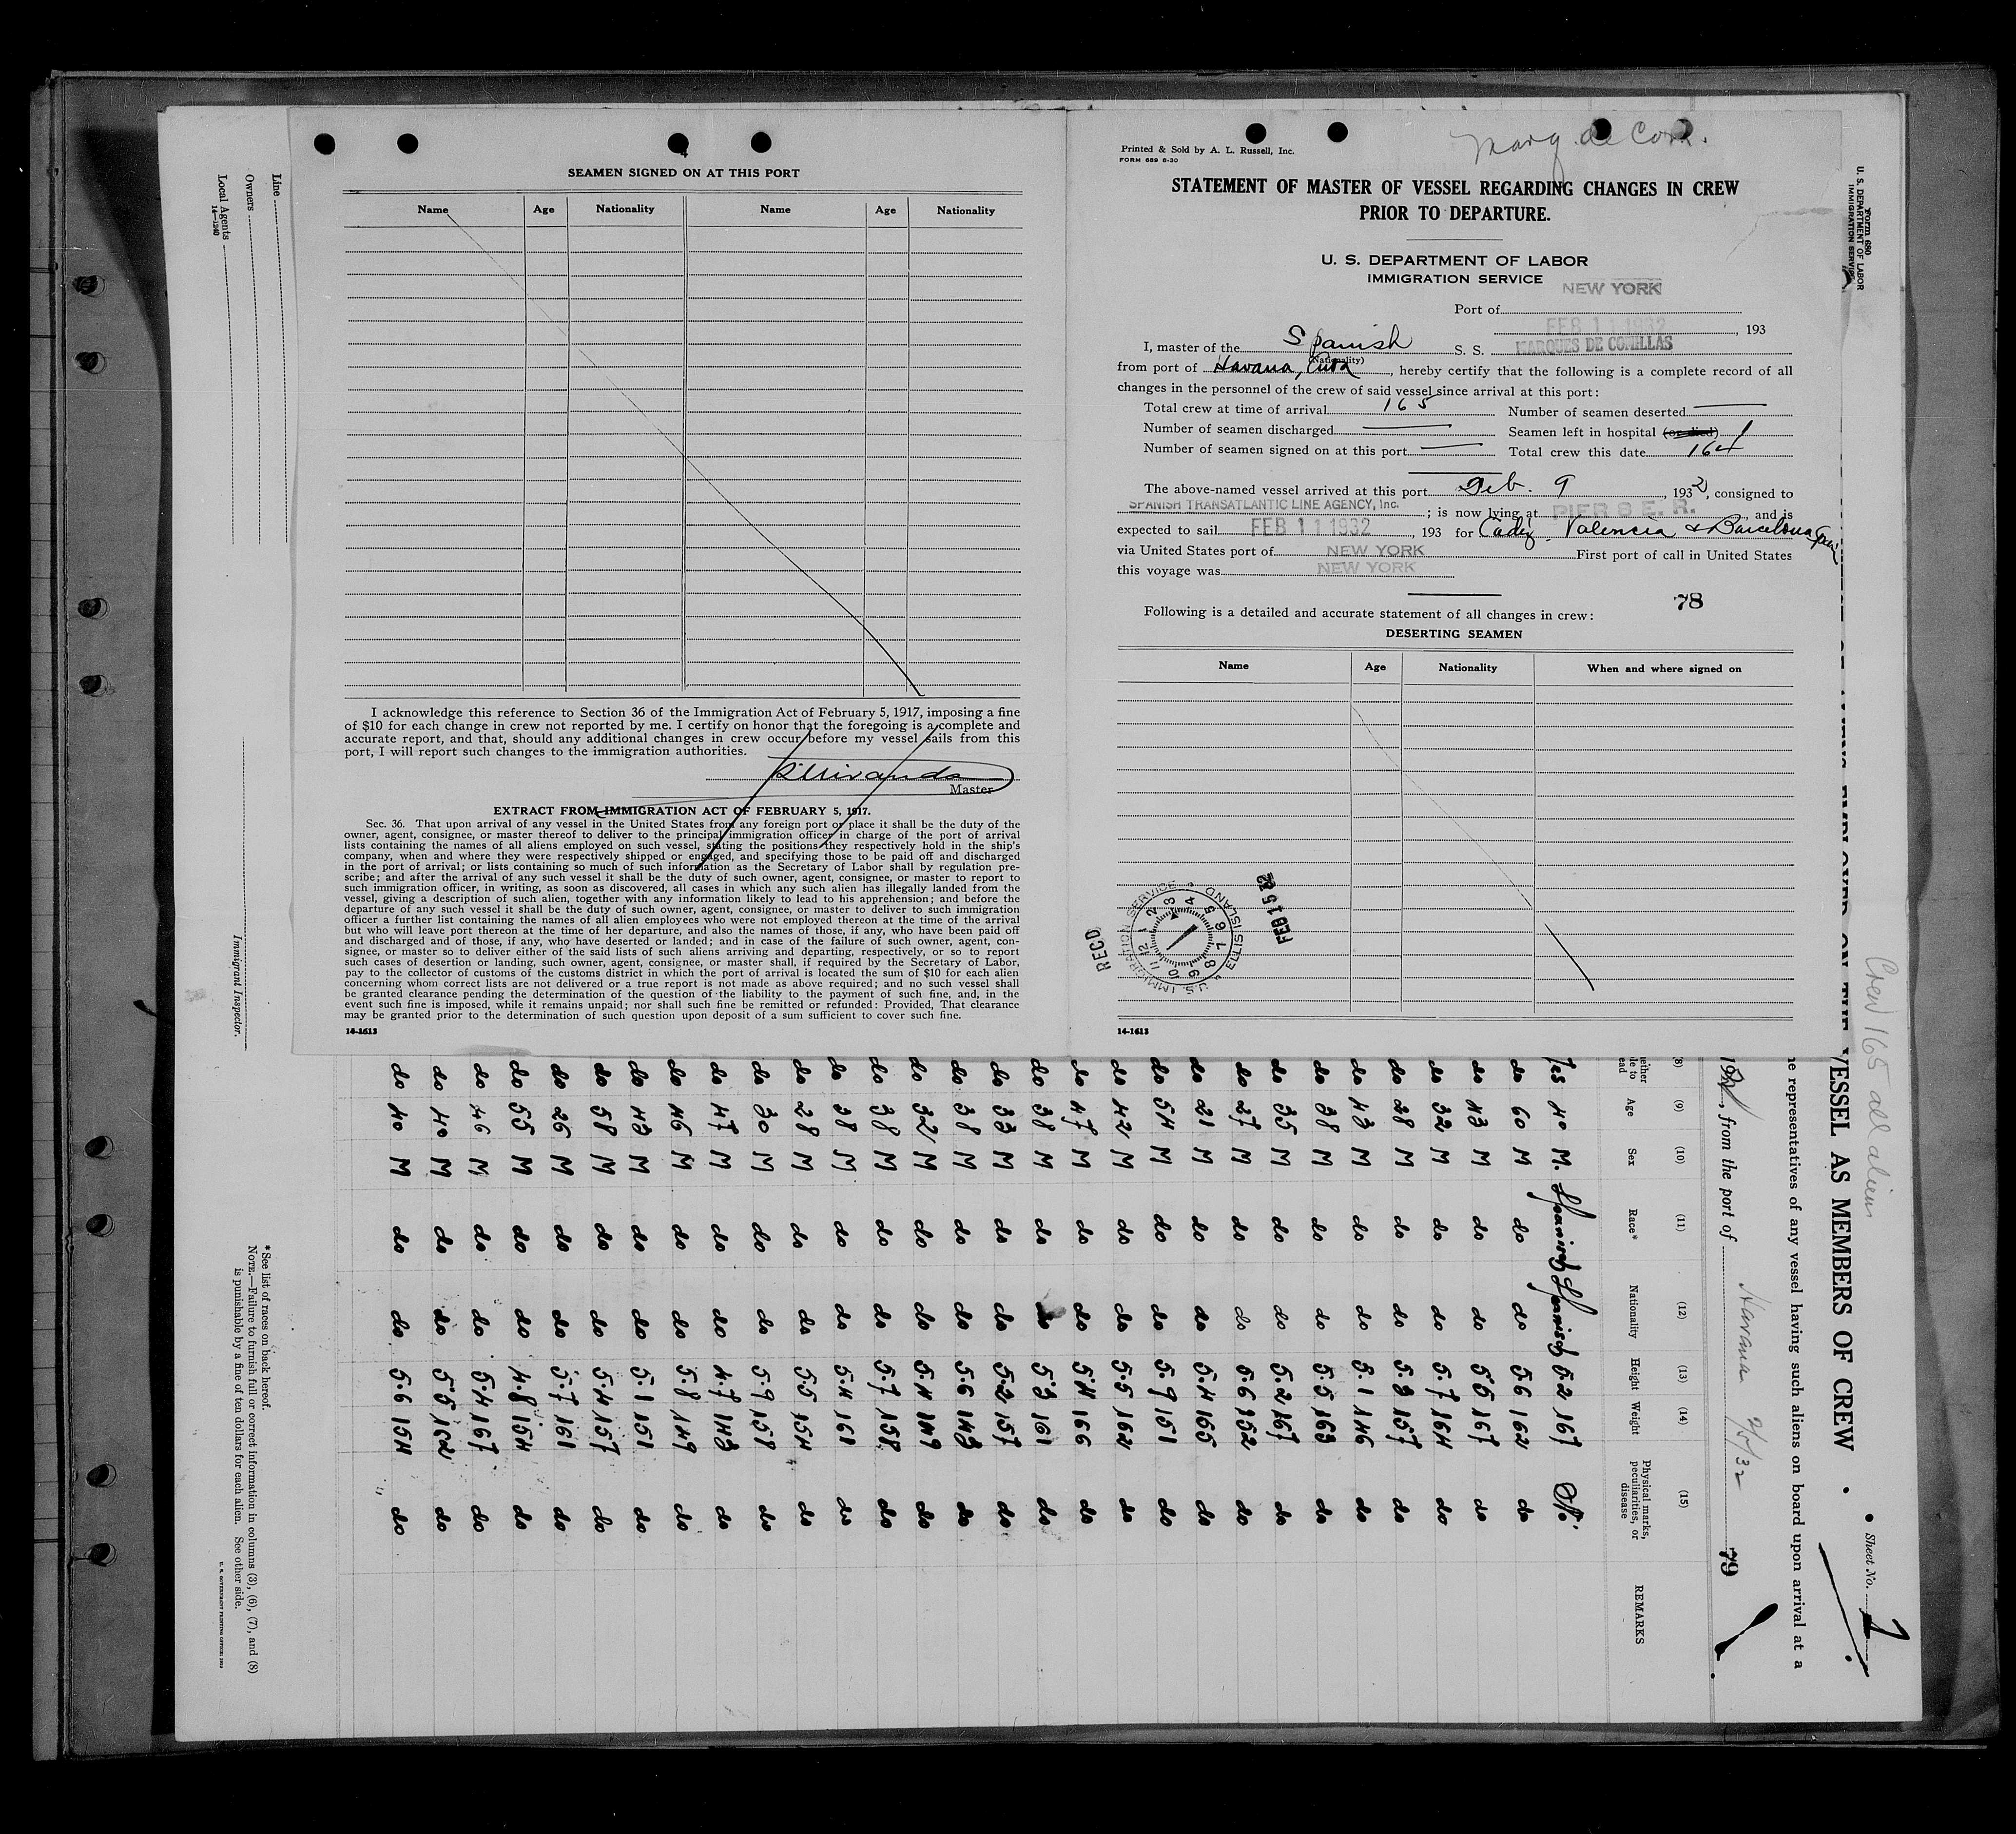 SEAMEN SIGNED ON AT THIS PORT
Name Age Nationality Name Age Nationality
I acknowledge this reference to Section 36 of the Immigration Act of February 5, 1917, imposing a fine
of $10 for each change in crew not reported by me. I certify on honor that the foregoing is a complete and
accurate report, and that, should any additional changes in crew occur before my vessel sails from this
port, I will report such changes to the immigration authorities.
Master
EXTRACT FROM IMMIGRATION ACT OF FEBRUARY 5, 1917.
Sec. 36. That upon arrival of any vessel in the United States from any foreign port or place it shall be the duty of the
owner, agent, consignee, or master thereof to deliver to the principal immigration officer in charge of the port of arrival
lists containing the names of all aliens employed on such vessel, stating the positions they respectively hold in the ship's
company, when and where they were respectively shipped or engaged, and specifying those to be paid off and discharged
in the port of arrival; or lists containing so much of such information as the Secretary of Labor shall by regulation pre-
scribe; and after the arrival of any such vessel it shall be the duty of such owner, agent, consignee, or master to report to
such immigration officer, in writing, as soon as discovered, all cases in which any such alien has illegally landed from the
vessel, giving a description of such alien, together with any information likely to lead to his apprehension; and before the
departure of any such vessel it shall be the duty of such owner, agent, consignee, or master to deliver to such immigration
officer a further list containing the names of all alien employees who were not employed thereon at the time of the arrival
but who will leave port thereon at the time of her departure, and also the names of those, if any, who have been paid off
and discharged and of those, if any, who have deserted or landed; and in case of the failure of such owner, agent, con-
signee, or master so to deliver either of the said lists of such aliens arriving and departing, respectively, or so to report
such cases of desertion or landing, such owner, agent, consignee, or master shall, if required by the Secretary of Labor,
pay to the collector of customs of the customs district in which the port of arrival is located the sum of $10 for each alien
concerning whom correct lists are not delivered or a true report is not made as above required; and no such vessel shall
be granted clearance pending the determination of the question of the liability to the payment of such fine, and, in the
event such fine is imposed, while it remains unpaid; nor shall such fine be remitted or refunded: Provided, That clearance
may be granted prior to the determination of such question upon deposit of a sum sufficient to cover such fine.
14-1613
Marq. de Com.
Printed & Sold by A. L. Russell, Inc.
FORM 689 8-30
STATEMENT OF MASTER OF VESSEL REGARDING CHANGES IN CREW
PRIOR TO DEPARTURE.
U. S. DEPARTMENT OF LABOR
IMMIGRATION SERVICE
Port of NEW YORK
FEB 11 1932, 193
I, master of the Spanish S. S. MARQUES DE COMILLAS
(Nationality)
from port of Havana, Cuba, hereby certify that the following is a complete record of all
changes in the personnel of the crew of said vessel since arrival at this port:
Total crew at time of arrival 165 Number of seamen deserted —
Number of seamen discharged — Seamen left in hospital (or died) 1
Number of seamen signed on at this port — Total crew this date 164
The above-named vessel arrived at this port Feb. 9, 1932, consigned to
SPANISH TRANSATLANTIC LINE AGENCY, Inc.; is now lying at PIER 8 E. R. and is
expected to sail FEB 11 1932, 193 for Cadiz, Valencia & Barcelona
via United States port of NEW YORK First port of call in United States
this voyage was NEW YORK
78
Following is a detailed and accurate statement of all changes in crew:
DESERTING SEAMEN
Name Age Nationality When and where signed on
RECD
U.S. IMMIGRATION SERVICE ELLIS ISLAND
1 2 3 4 5 6 7 8 9 10 11 12
FEB 15 32
14-1613
Form 680
U. S. DEPARTMENT OF LABOR
IMMIGRATION SERVICE
Crew 165 all aliens
VESSEL AS MEMBERS OF CREW
Sheet No. 1
representatives of any vessel having such aliens on board upon arrival at a
, from the port of Havana 2/5/32
79
(8) (9) (10) (11) (12) (13) (14) (15)
Age Sex Race* Nationality Height Weight Physical marks, peculiarities, or disease REMARKS
Yes 40 M. Spanish Spanish 5.2 167 No.
do 60 M do do 5.6 162 do
do 43 M do do 5.6 167 do
do 32 M do do 5.7 164 do
do 28 M do do 5.3 157 do
do 43 M do do 5.1 146 do
do 38 M do do 5.5 163 do
do 35 M do do 5.2 167 do
do 27 M do do 5.6 152 do
do 21 M do do 5.4 165 do
do 54 M do do 5.9 151 do
do 42 M do do 5.5 162 do
do 47 M do do 5.4 166 do
do 38 M do do 5.3 161 do
do 33 M do do 5.2 157 do
do 38 M do do 5.6 143 do
do 32 M do do 5.4 149 do
do 38 M do do 5.7 158 do
do 38 M do do 5.4 161 do
do 28 M do do 5.5 154 do
do 30 M do do 5.9 158 do
do 47 M do do 4.7 143 do
do 46 M do do 5.8 149 do
do 43 M do do 5.1 151 do
do 58 M do do 5.4 157 do
do 26 M do do 5.7 161 do
do 55 M do do 4.8 154 do
do 46 M do do 5.4 167 do
do 40 M do do 5.5 152 do
do 40 M do do 5.6 154 do
Line
Owners
Local Agents
14-1240
Immigrant Inspector.
* See list of races on back hereof.
NOTE.—Failure to furnish full or correct information in columns (3), (6), (7), and (8)
is punishable by a fine of ten dollars for each alien. See other side.